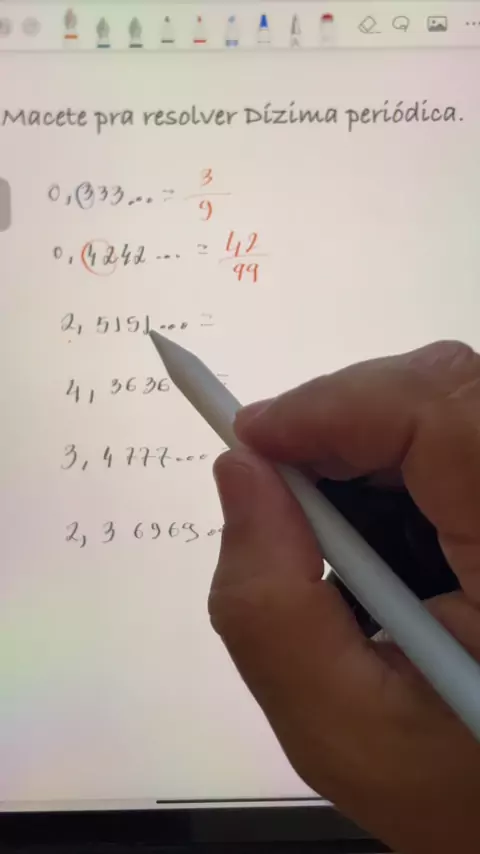 Macete pra resolver Dízima periódica.
0,333... = 3/9
0,4242... = 42/99
2,5151... =
4,3636 =
3,4777...
2,36969...